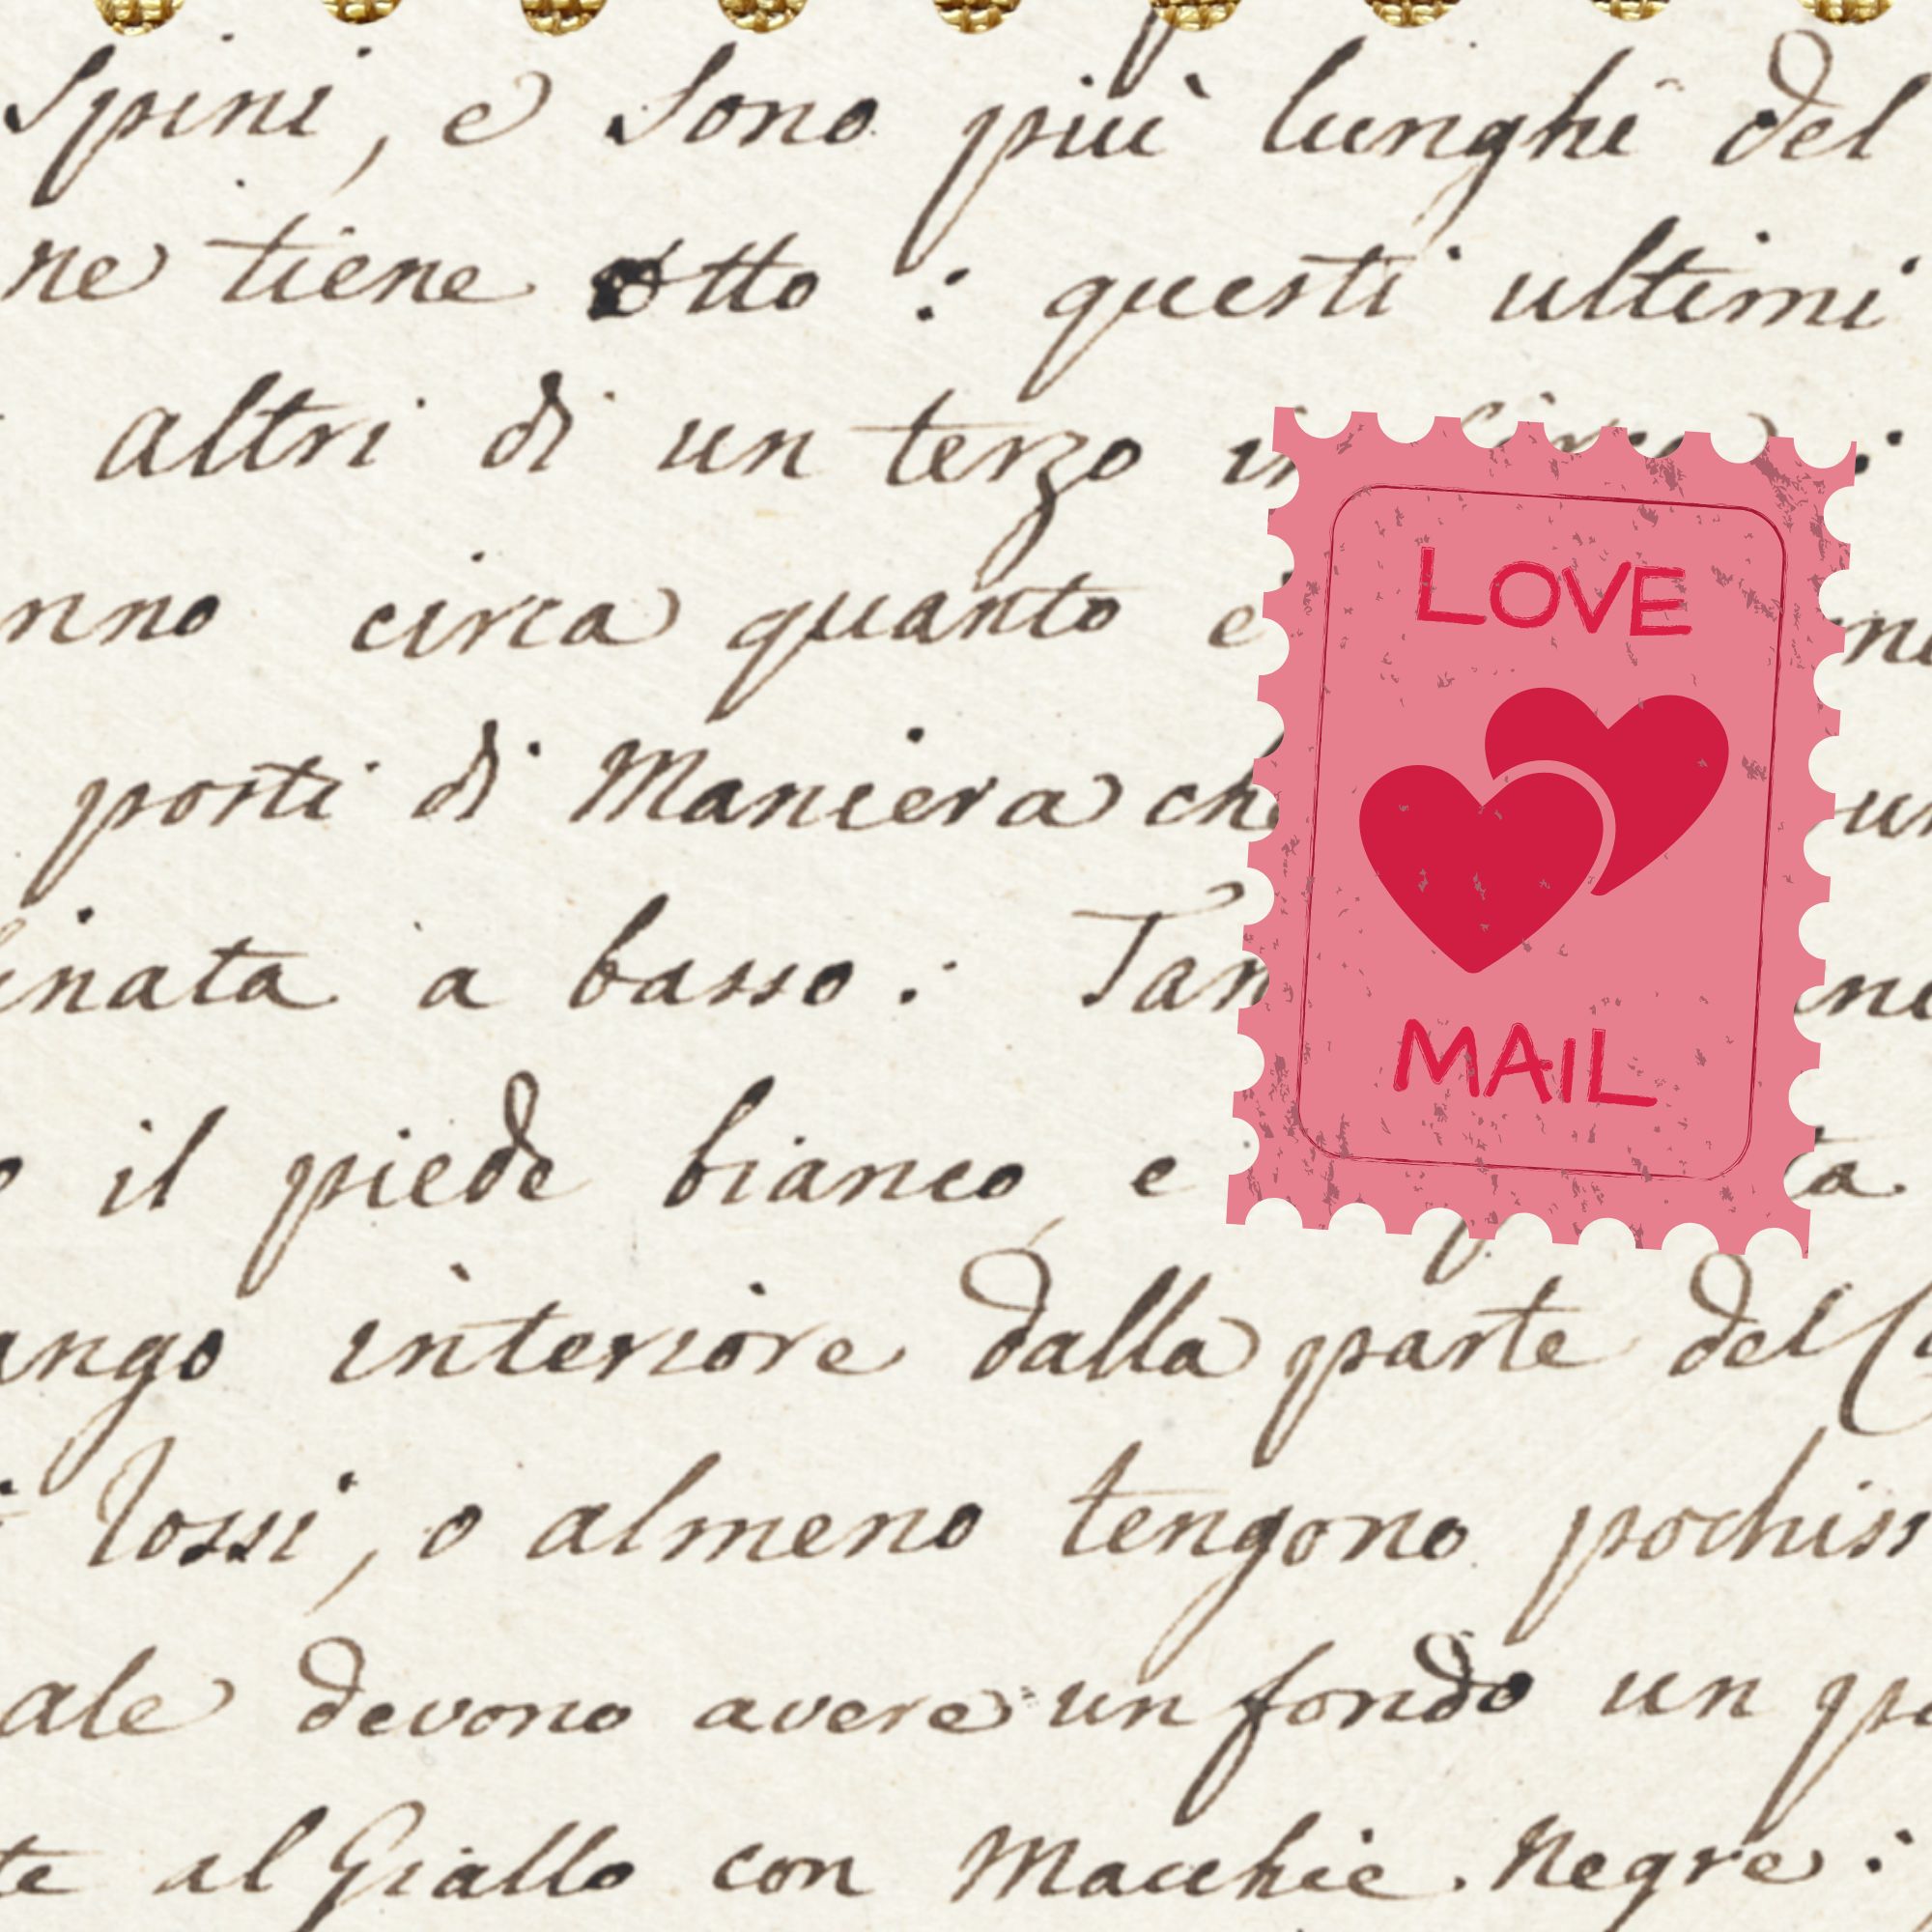 Spini, e Sono più lunghi del
ne tiene otto : questi ultimi
altri di un terzo
circa quanto
LOVE
posti di Maniera
MAIL
a basso :
il piede bianco, e
interiore dalla parte del
Rossi, o almeno tengono
devono avere un fondo un
al Giallo con Macchie Negre :